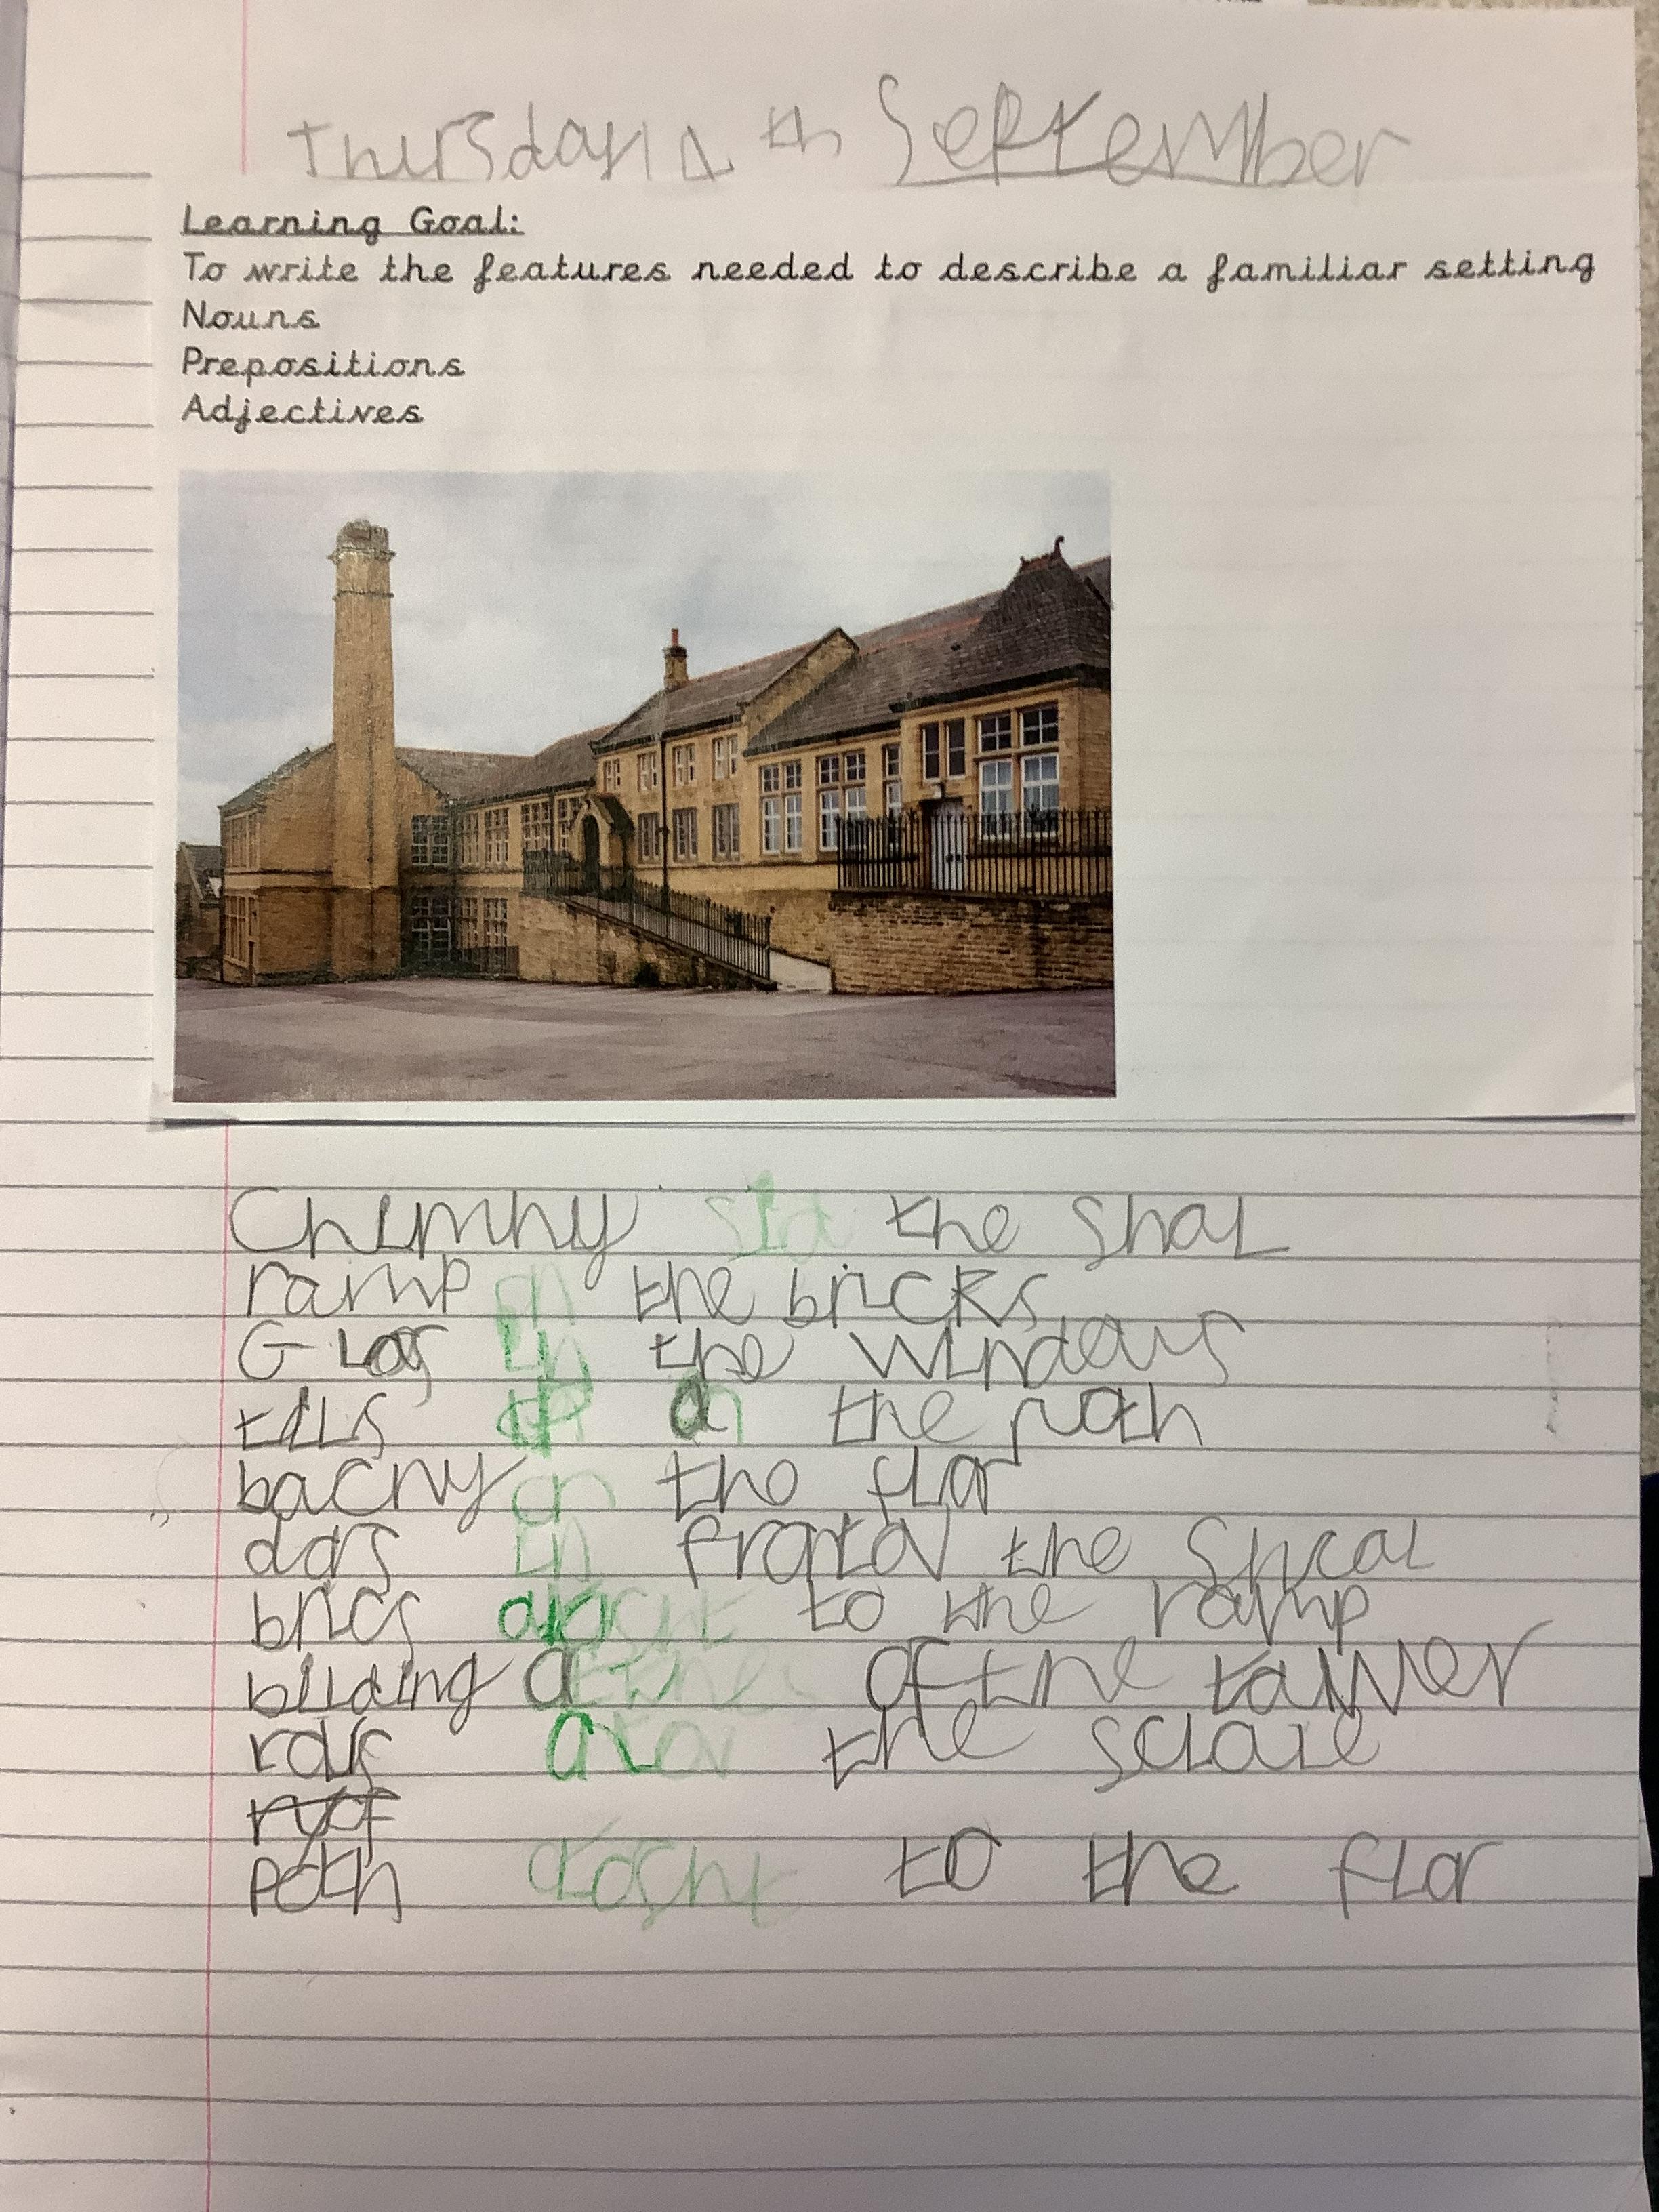 Thursday 12th September
Learning Goal:
To write the features needed to describe a familiar setting
Nouns
Prepositions
Adjectives
Chimny sid the shal
ramp on the bricks
Glas in the windows
tils on the path
bacny on the flor
dors in frontov the shcal
brics to the ramp
bilding of the tawwer
the
roof
path to the flor